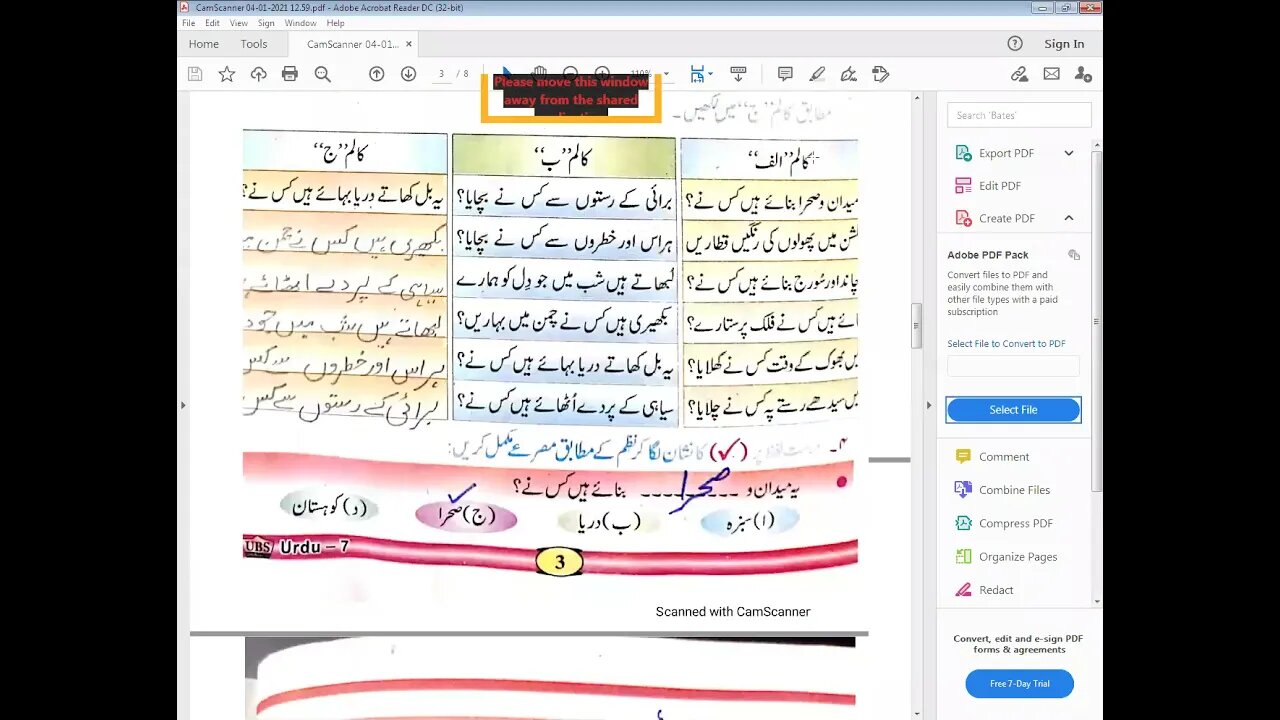 CamScanner 04-01-2021 12.59.pdf - Adobe Acrobat Reader DC (32-bit)
File Edit View Sign Window Help
Home Tools CamScanner 04-01... × Sign In
3 / 8 110%
Please move this window
away from the shared
Search 'Bates'
Export PDF
Edit PDF
Create PDF
Adobe PDF Pack
Convert files to PDF and
easily combine them with
other file types with a paid
subscription
Select File to Convert to PDF
Select File
Comment
Combine Files
Compress PDF
Organize Pages
Redact
Convert, edit and e-sign PDF
forms & agreements
Free 7-Day Trial
مطابق کالم ”ج“ میں لکھیں۔
کالم ”الف“ کالم ”ب“ کالم ”ج“
میدان و صحرا بنائے ہیں کس نے؟ برائی کے رستوں سے کس نے بچایا؟ یہ بل کھاتے دریا بہائے ہیں کس نے؟
میں پھولوں کی رنگیں قطاریں ہراس اور خطروں سے کس نے بچایا؟ بکھیری ہیں کس نے چمن
چاند اور سُورج بنائے ہیں کس نے؟ لبھاتے ہیں شب میں جو دِل کو ہمارے سیاہی کے پردے اٹھائے
ہیں کس نے فلک پر ستارے؟ بکھیری ہیں کس نے چمن میں بہاریں؟ لبھاتے ہیں شب میں جو د
بھوک کے وقت کس نے کھلایا؟ یہ بل کھاتے دریا بہائے ہیں کس نے؟ ہراس اور خطروں سے کس
سیدھے رستے پہ کس نے چلایا؟ سیاہی کے پردے اُٹھائے ہیں کس نے؟ برائی کے رستوں سے کس
۴۔ پر (✓) کا نشان لگا کر نظم کے مطابق مصرعے مکمل کریں:
یہ میدان و صحرا بنائے ہیں کس نے؟
(ا) سبزہ (ب) دریا (ج) صحرا (د) کوہستان
UBS Urdu – 7
3
Scanned with CamScanner